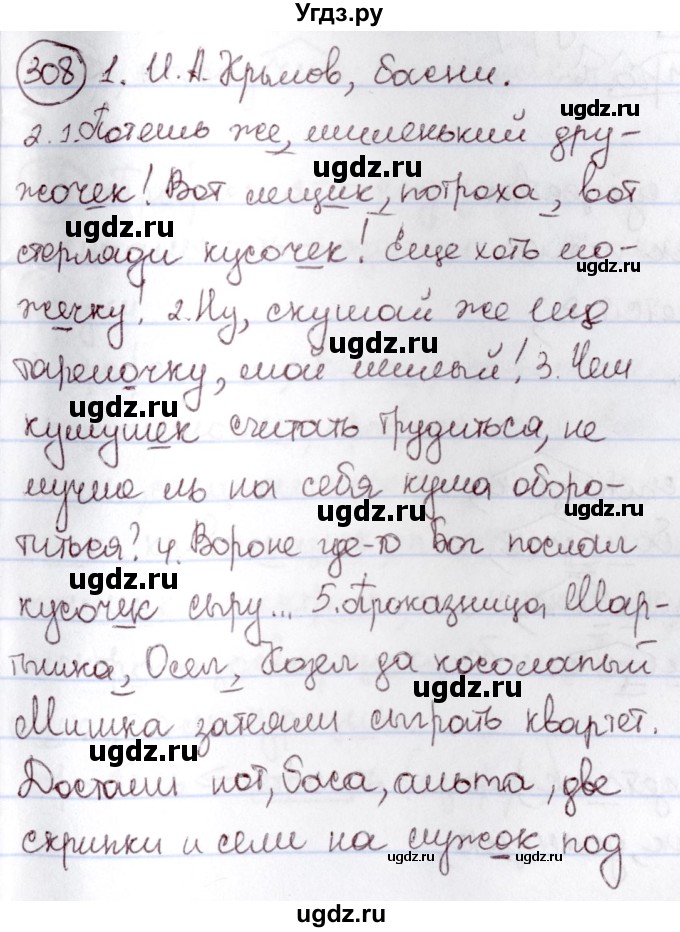 Угдз.ру
308 1. И.А. Крылов, басни.
2. 1. Потешь же, миленький дру-
ugdz.ru ugdz.ru
жочек! Вот лещик, потроха, вот
ugdz.ru
стерляди кусочек! Еще хоть ло-
ugdz.ru
жечку! 2. Ну, скушай же ещё
ugdz.ru
тарелочку, мой милый! 3. Чем
ugdz.ru
кумушек считать трудиться, не
лучше ль на себя кума оборо-
ugdz.ru
титься? 4. Вороне где-то Бог послал
ugdz.ru
кусочек сыру... 5. Проказница, Мар-
тышка, Осел, Козел да косолапый
ugdz.ru
Мишка затеяли сыграть квартет.
ugdz.ru
Достали нот, баса, альта, две
скрипки и сели на лужок под
ugdz.ru ugdz.ru
ugdz.ru